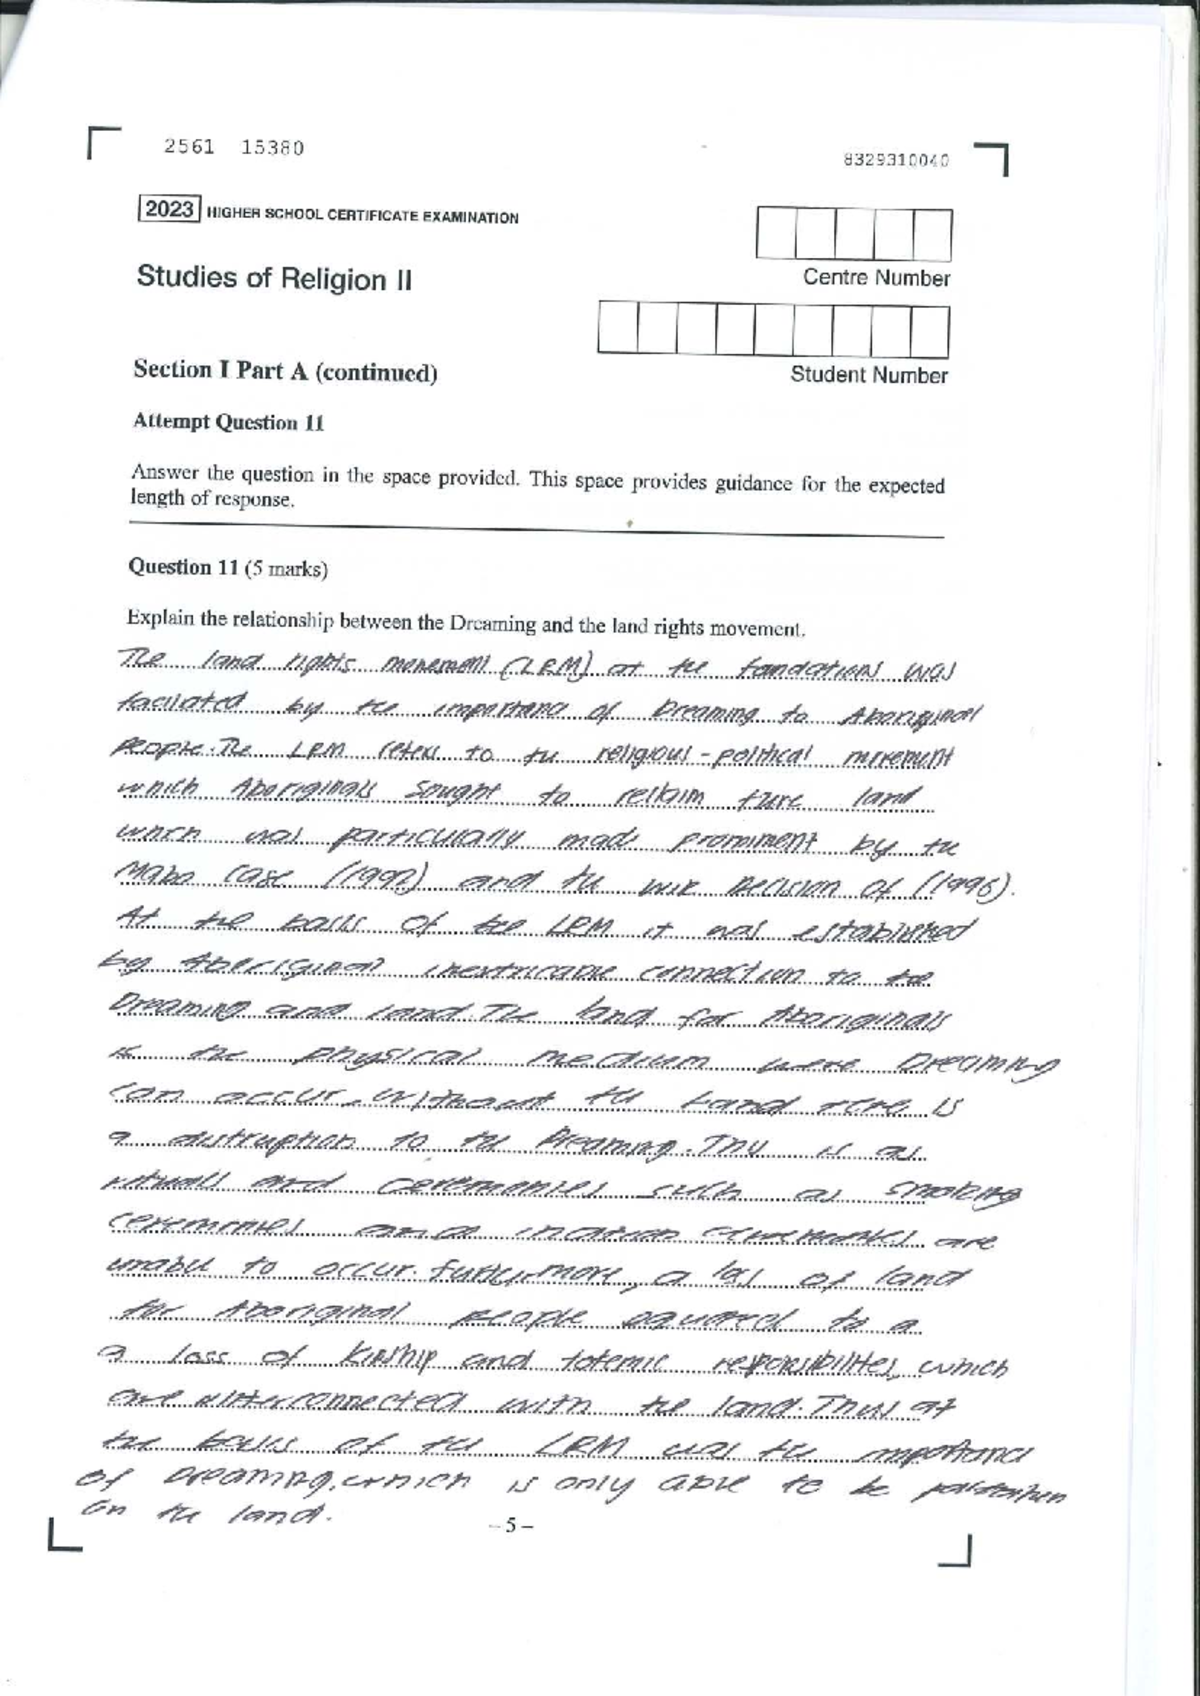 2561 15380
8329310040
2023 HIGHER SCHOOL CERTIFICATE EXAMINATION
Centre Number
Studies of Religion II
Student Number
Section I Part A (continued)
Attempt Question 11
Answer the question in the space provided. This space provides guidance for the expected
length of response.
Question 11 (5 marks)
Explain the relationship between the Dreaming and the land rights movement.
The land rights movement (LRM) at the foundation was
facilated by the importance of Dreaming to Aboriginal
People. The LRM refers to the religious-political movement
which Aboriginals sought to reliaim land
which was particularly made prominent by the
Mabo Case (1992) and the Wik Decision of (1996).
At the basis of the LRM it was established
by Aboriginal inextricable connection to the
Dreaming and land. The land for Aboriginals
is the physical medium were Dreaming
can occur. Without the Land there is
a distruption to the Dreaming. This is as
rituals and ceremonies such as smoking
ceremonies and are
unable to occur. Furthermore, a loss of land
for Aboriginal people equated to a
a loss of kinship and totemic responsibilites, which
are interconnected with the land. Thus at
the basis of the LRM was the importance
of Dreaming, which is only able to be
on the land.
– 5 –